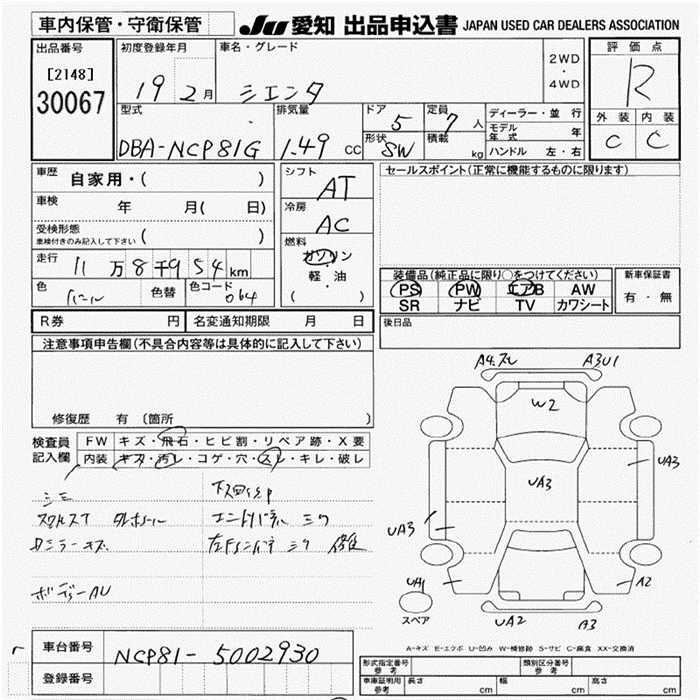 車内保管・守衛保管
JU 愛知 出品申込書 JAPAN USED CAR DEALERS ASSOCIATION
出品番号
[2148]
30067
初度登録年月
19 2月
車名・グレード
シエンタ
2WD
・
4WD
評価点
R
外装 内装
C C
型式
DBA-NCP81G
排気量
1.49 CC
ドア
5
形状
SW
定員
7人
積載
kg
ディーラー・並行
モデル年式 年
ハンドル 左・右
車歴
自家用・( )
車検
年 月( 日)
受検形態
車検付きのみ記入して下さい ( )
走行
11万8千954km
色
色替
色コード
064
シフト
AT
冷房
AC
燃料
ガソリン
・
軽・油
( )
セールスポイント(正常に機能するものに限ります)
装備品(純正品に限り○をつけてください)
PS PW エアB AW
SR ナビ TV カワシート
新車保証書
有・無
後日品
R券 円
名変通知期限 月 日
注意事項申告欄(不具合内容等は具体的に記入して下さい)
修復歴 有 (箇所 )
検査員
記入欄
FW キズ・飛石・ヒビ割・リペア跡・X要
内装 キズ・汚レ・コゲ・穴・スレ・キレ・破レ
シミ
ボディーAU
A4.スレ A3U1
W2
UA3
UA3
UA3
UA1
A2
スペア
UA2
A3
A-キズ E-エクボ U-凹み W-補修跡 S-サビ C-腐食 XX-交換済
車台番号
NCP81-5002930
登録番号
形式指定番号
参考
類別区分番号
参考
車庫証明用
参考
長さ cm
幅 cm
高さ cm